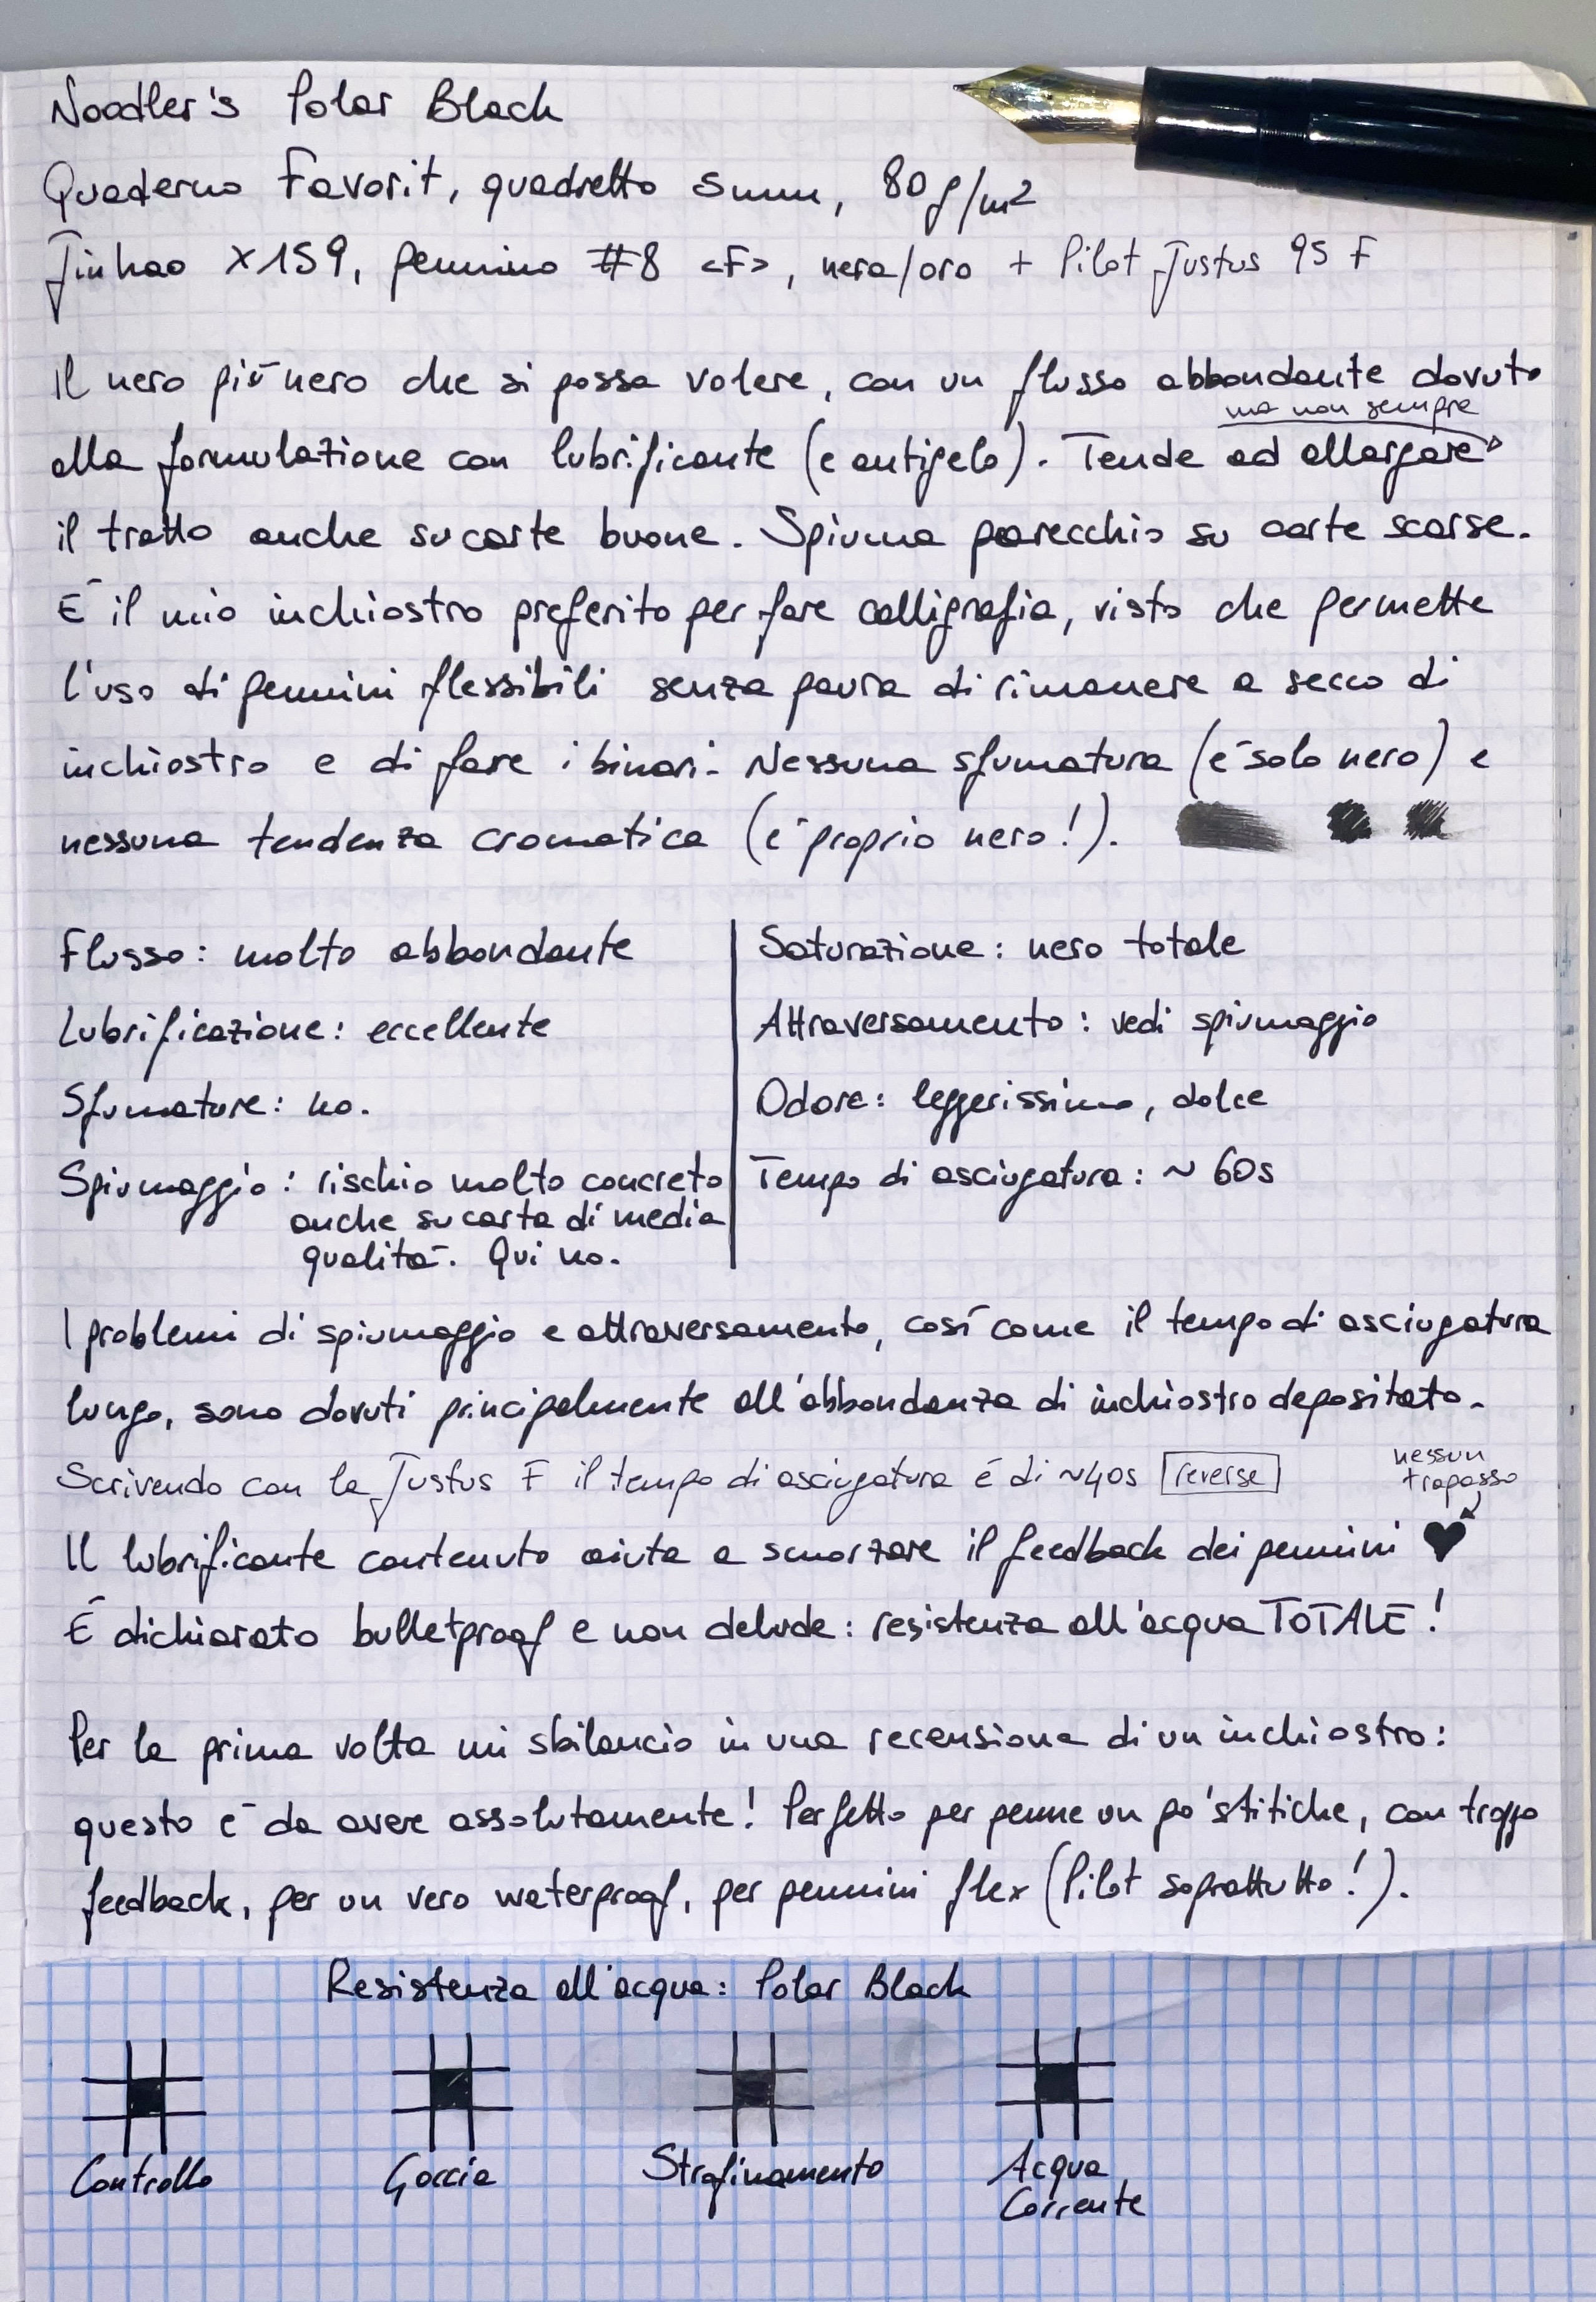 Noodler's Polar Black
Quaderno Favorit, quadretto 5mm, 80g/m²
Jinhao X159, pennino #8 <F>, nera/oro + Pilot Justus 95 F
Il nero più nero che si possa volere, con un flusso abbondante dovuto
ma non sempre
alla formulazione con lubrificante (e antigelo). Tende ad allargare
il tratto anche su carte buone. Spiuma parecchio su carte scarse.
È il mio inchiostro preferito per fare calligrafia, visto che permette
l'uso di pennini flessibili senza paura di rimanere a secco di
inchiostro e di fare i binari. Nessuna sfumatura (è solo nero) e
nessuna tendenza cromatica (è proprio nero!).
Flusso: molto abbondante
Lubrificazione: eccellente
Sfumature: no.
Spiumaggio: rischio molto concreto
anche su carta di media
qualità. Qui no.
Saturazione: nero totale
Attraversamento: vedi spiumaggio
Odore: leggerissimo, dolce
Tempo di asciugatura: ~ 60s
I problemi di spiumaggio e attraversamento, così come il tempo di asciugatura
lungo, sono dovuti principalmente all'abbondanza di inchiostro depositato.
Scrivendo con la Justus F il tempo di asciugatura è di ~40s reverse
nessun
trapasso
Il lubrificante contenuto aiuta a smorzare il feedback dei pennini ♥
È dichiarato bulletproof e non delude: resistenza all'acqua TOTALE!
Per la prima volta mi sbilancio in una recensione di un inchiostro:
questo è da avere assolutamente! Perfetto per penne un po' stitiche, con troppo
feedback, per un vero waterproof, per pennini flex (Pilot soprattutto!).
Resistenza all'acqua: Polar Black
Controllo
Goccia
Strofinamento
Acqua
Corrente